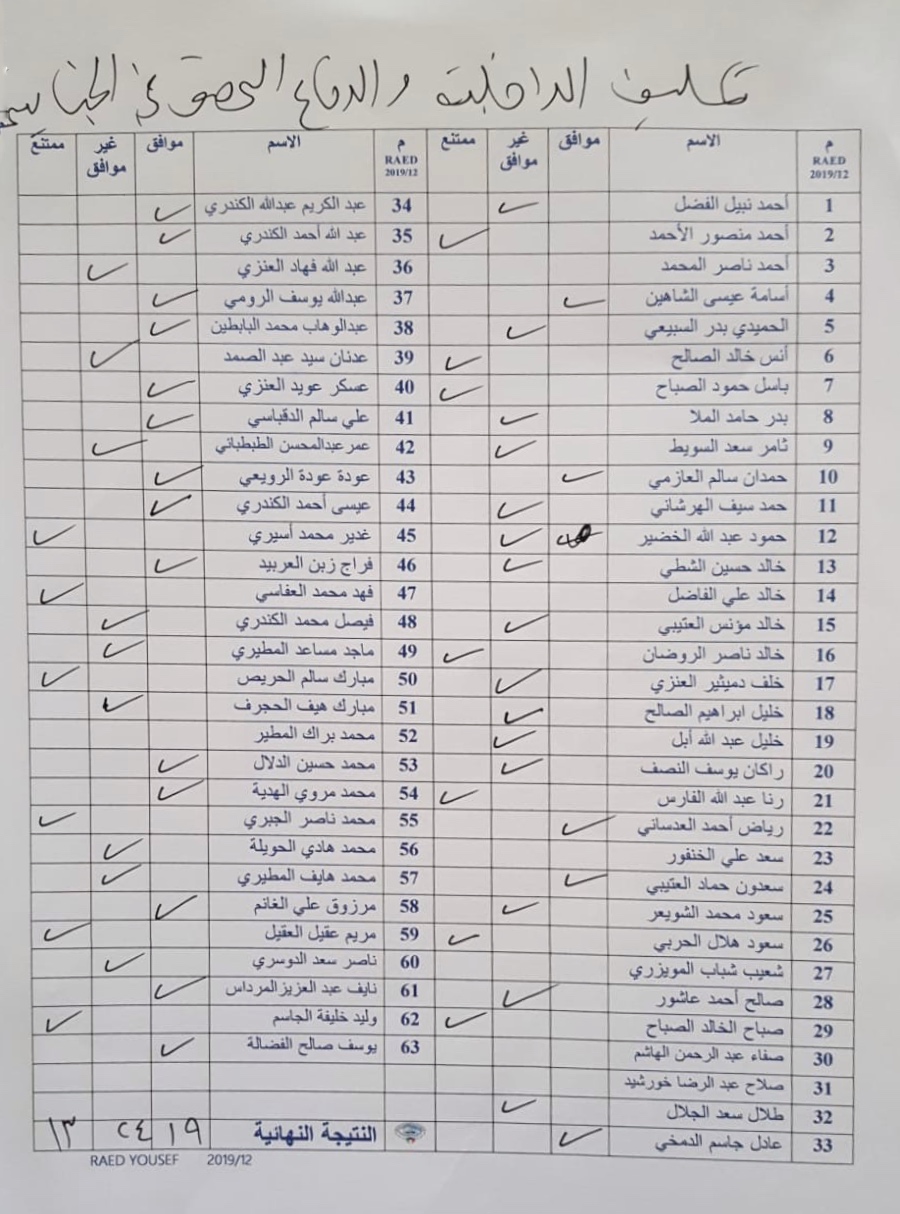 تكليف الداخلية والدفاع التحقق في الجنا
م RAED 2019/12 الاسم موافق غير موافق ممتنع
1 أحمد نبيل الفضل ✓
2 أحمد منصور الأحمد ✓
3 أحمد ناصر المحمد
4 أسامة عيسى الشاهين ✓
5 الحميدي بدر السبيعي ✓
6 أنس خالد الصالح ✓
7 باسل حمود الصباح ✓
8 بدر حامد الملا ✓
9 ثامر سعد السويط ✓
10 حمدان سالم العازمي ✓
11 حمد سيف الهرشاني ✓
12 حمود عبد الله الخضير ✓
13 خالد حسين الشطي ✓
14 خالد علي الفاضل
15 خالد مؤنس العتيبي ✓
16 خالد ناصر الروضان ✓
17 خلف دميثير العنزي ✓
18 خليل ابراهيم الصالح ✓
19 خليل عبد الله أبل ✓
20 راكان يوسف النصف ✓
21 رنا عبد الله الفارس ✓
22 رياض أحمد العدساني ✓
23 سعد علي الخنفور
24 سعدون حماد العتيبي ✓
25 سعود محمد الشويعر ✓
26 سعود هلال الحربي ✓
27 شعيب شباب المويزري
28 صالح أحمد عاشور ✓
29 صباح الخالد الصباح ✓
30 صفاء عبد الرحمن الهاشم
31 صلاح عبد الرضا خورشيد
32 طلال سعد الجلال ✓
33 عادل جاسم الدمخي ✓
م RAED 2019/12 الاسم موافق غير موافق ممتنع
34 عبد الكريم عبدالله الكندري ✓
35 عبد الله أحمد الكندري ✓
36 عبد الله فهاد العنزي ✓
37 عبدالله يوسف الرومي ✓
38 عبدالوهاب محمد البابطين ✓
39 عدنان سيد عبد الصمد ✓
40 عسكر عويد العنزي ✓
41 علي سالم الدقباسي ✓
42 عمر عبدالمحسن الطبطبائي ✓
43 عودة عودة الرويعي ✓
44 عيسى أحمد الكندري ✓
45 غدير محمد أسيري ✓
46 فراج زبن العربيد ✓
47 فهد محمد العفاسي ✓
48 فيصل محمد الكندري ✓
49 ماجد مساعد المطيري ✓
50 مبارك سالم الحريص ✓
51 مبارك هيف الحجرف ✓
52 محمد براك المطير
53 محمد حسين الدلال ✓
54 محمد مروي الهدية ✓
55 محمد ناصر الجبري ✓
56 محمد هادي الحويلة ✓
57 محمد هايف المطيري ✓
58 مرزوق علي الغانم ✓
59 مريم عقيل العقيل ✓
60 ناصر سعد الدوسري ✓
61 نايف عبد العزيز المرداس ✓
62 وليد خليفة الجاسم ✓
63 يوسف صالح الفضالة ✓
النتيجة النهائية ١٩ ٢٤ ١٣
RAED YOUSEF 2019/12